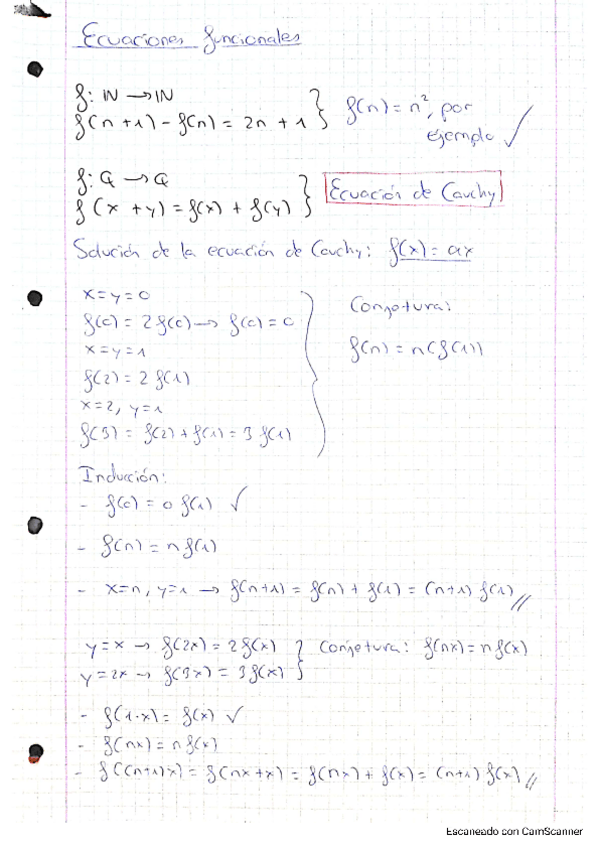 Ecuaciones funcionales
f: ℕ → ℕ
f(n+1) - f(n) = 2n + 1 } f(n) = n², por ejemplo ✓
f: ℚ → ℚ
f(x+y) = f(x) + f(y) } Ecuación de Cauchy
Solución de la ecuación de Cauchy: f(x) = ax
x=y=0
f(0) = 2f(0) → f(0) = 0
x=y=1
f(2) = 2f(1)
x=2, y=1
f(3) = f(2) + f(1) = 3f(1)
Conjetura:
f(n) = n(f(1))
Inducción:
- f(0) = 0 f(1) ✓
- f(n) = n f(1)
- x=n, y=1 → f(n+1) = f(n) + f(1) = (n+1) f(1) //
y=x → f(2x) = 2f(x)
y=2x → f(3x) = 3f(x) } Conjetura: f(nx) = n f(x)
- f(1·x) = f(x) ✓
- f(nx) = n f(x)
- f((n+1)x) = f(nx+x) = f(nx) + f(x) = (n+1) f(x) //
Escaneado con CamScanner